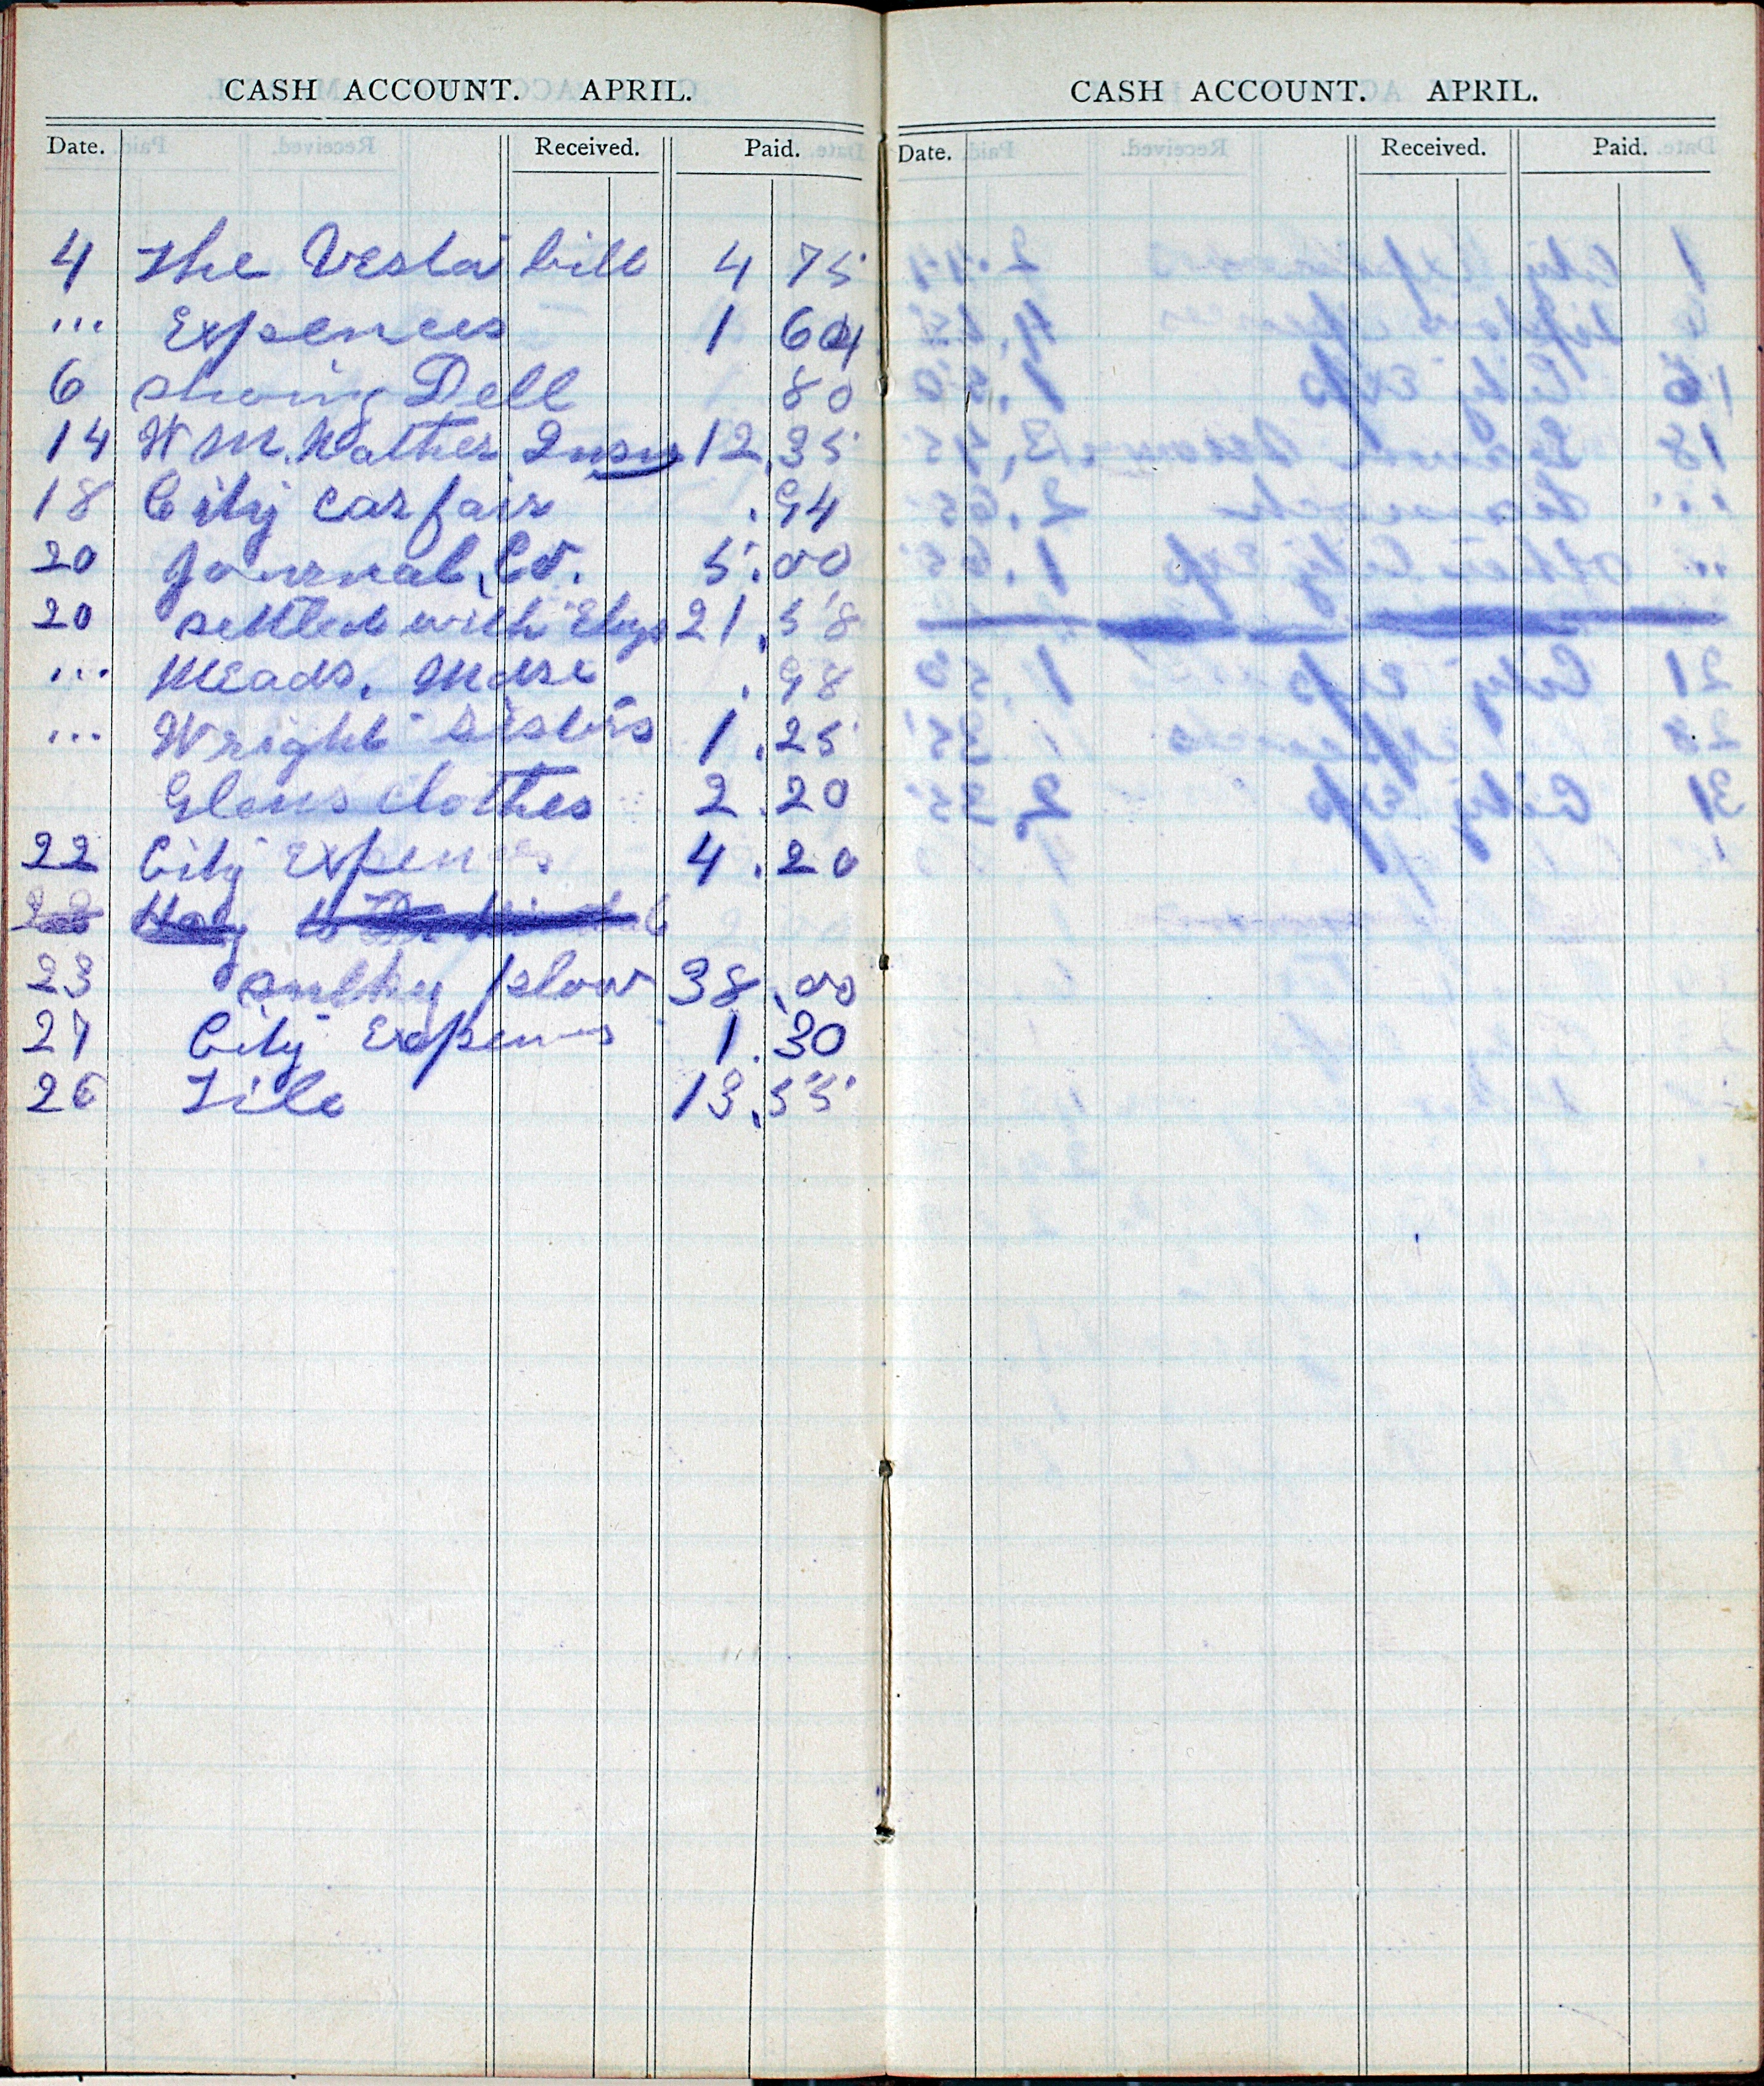 CASH ACCOUNT. APRIL.
Date. Received. Paid.
4 The Vesta bill 4 75
... Expences 1 64
6 shoing Dell 80
14 W M. Mather Insu 12.35
18 City car fair .94
20 Journal, Co. 5.00
20 settled with Elys 21.58
... Meads. Mdse .98
... Wright Sisters 1.25
Glens clothes 2.20
22 City Expences 4.20
Hay
23 sulky plow 38.00
27 City Expences 1.30
26 Tile 13.55
CASH ACCOUNT. APRIL.
Date. Received. Paid.